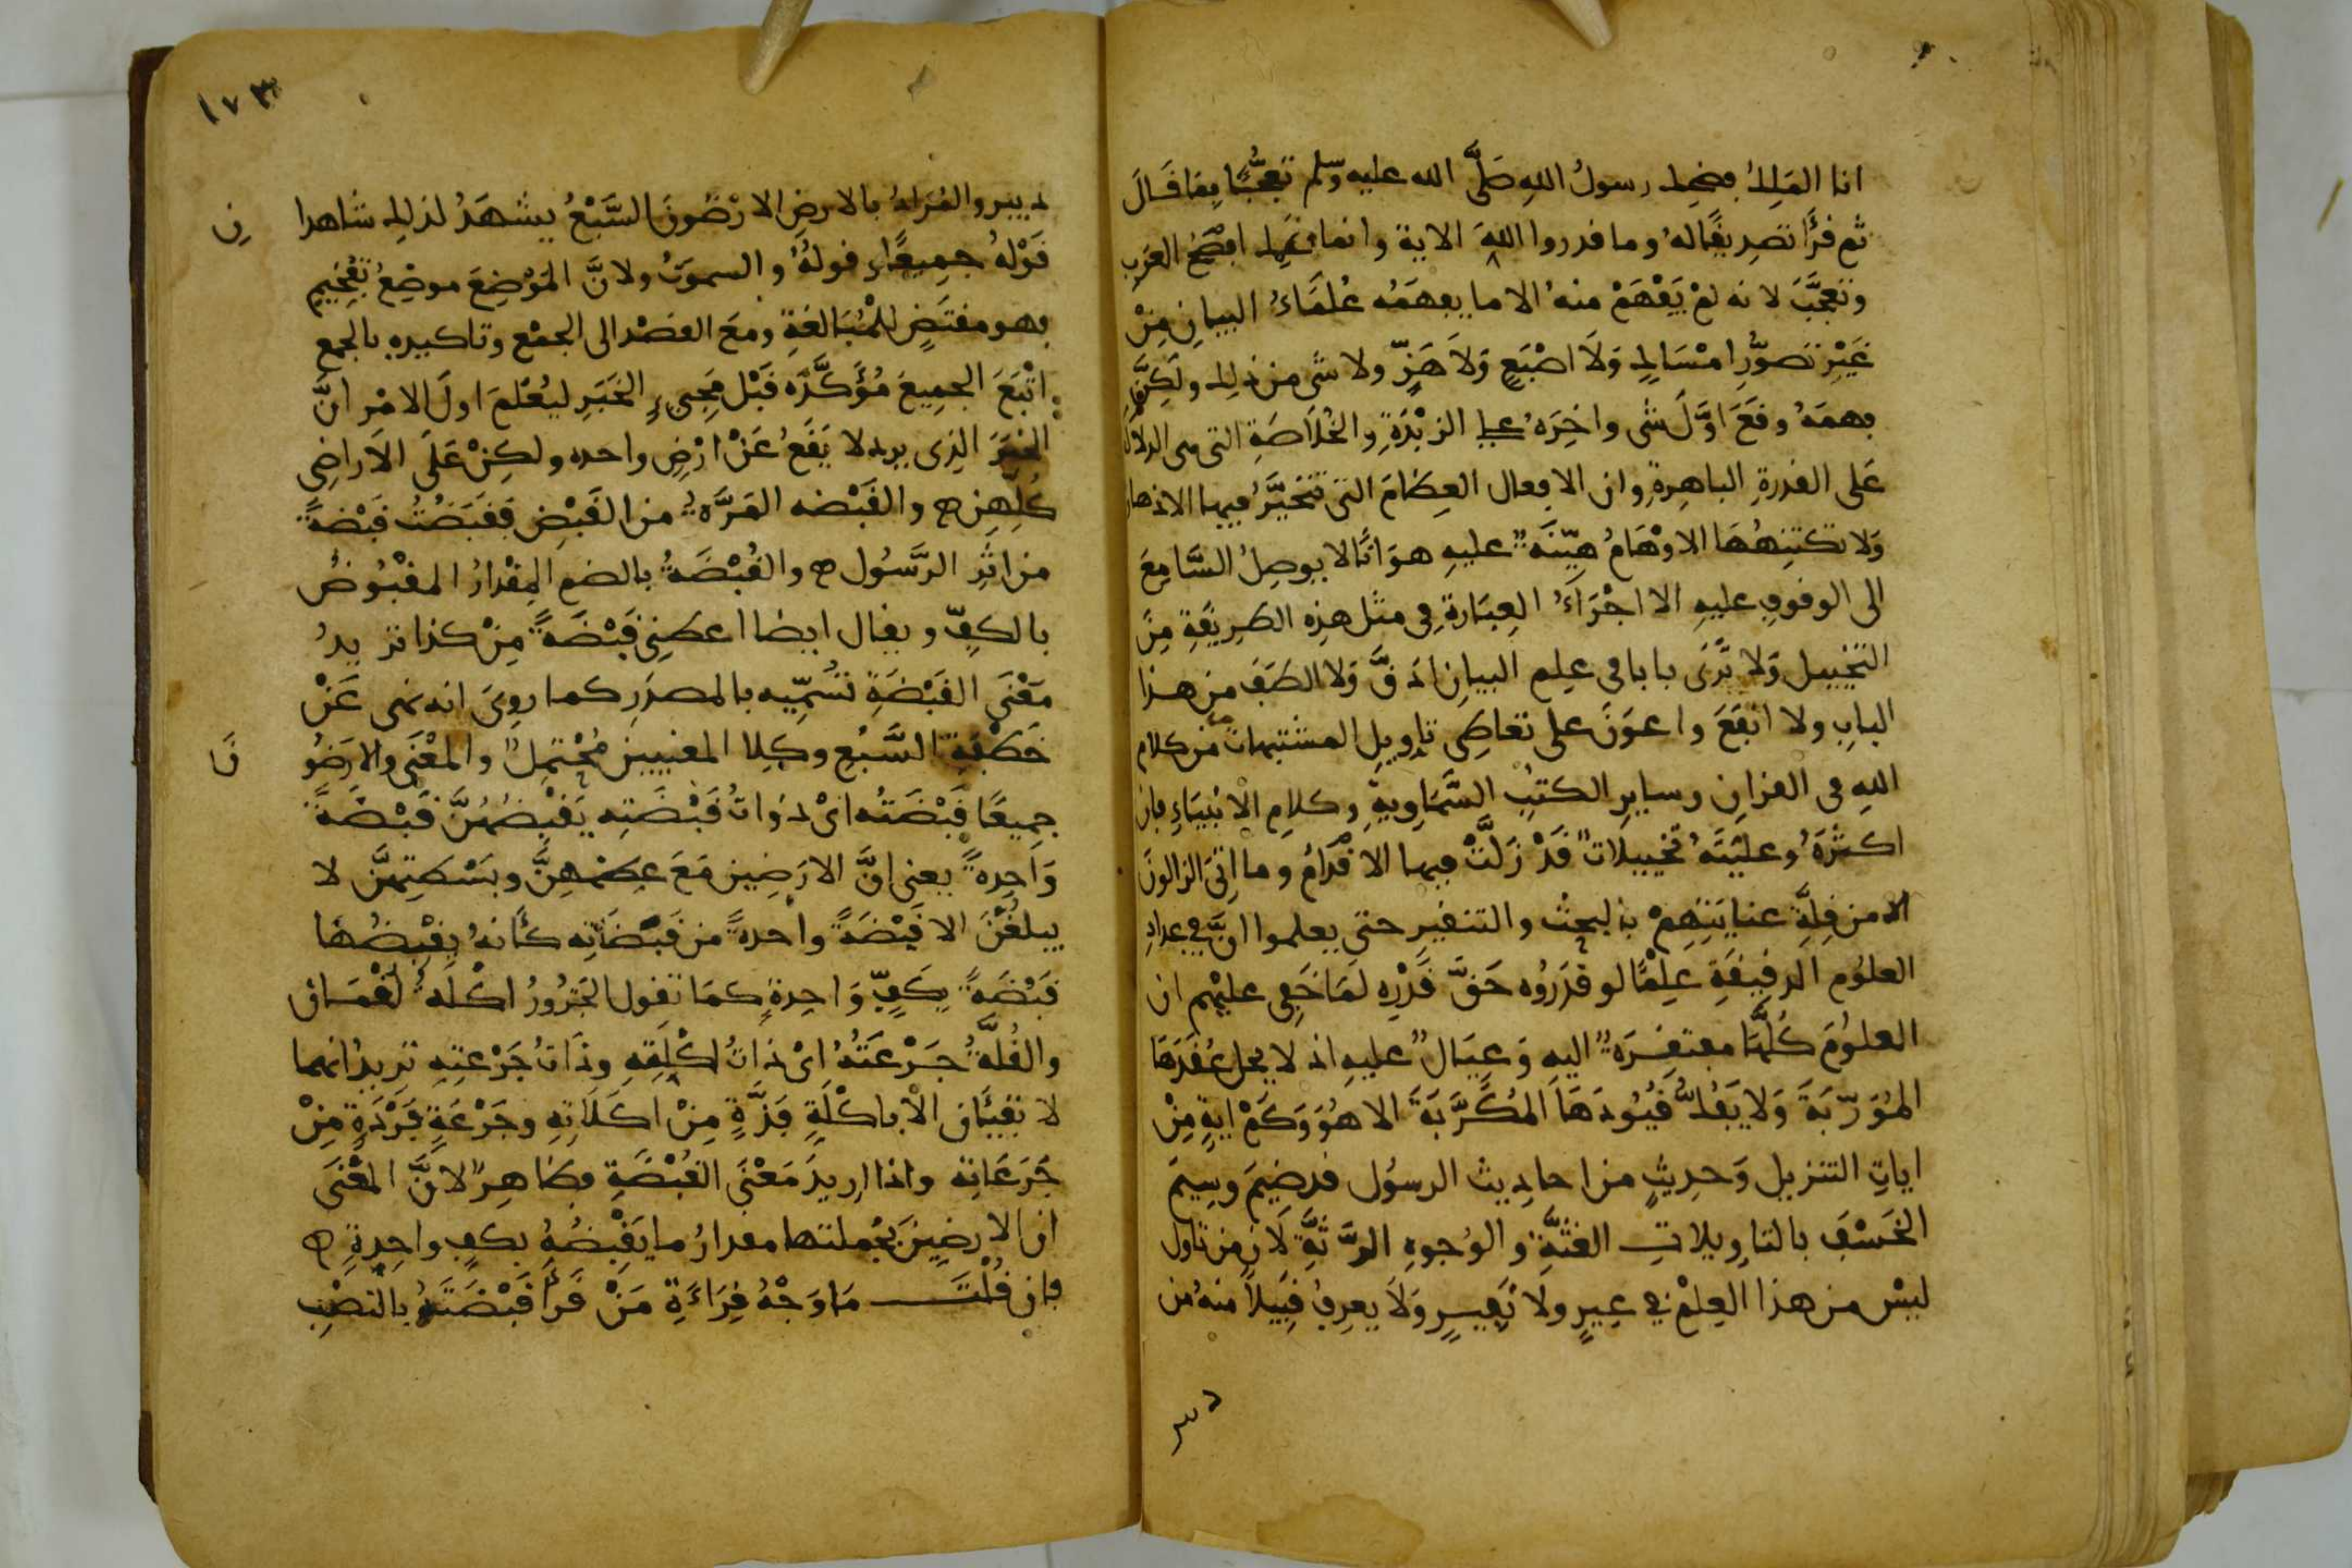 انا المَلِكُ فضحِك رسولُ اللهِ صَلَّى الله عليه وسلم تعَجُّبًا مِمَّا قَالَ
ثم قرَأ تصدِيقًا له وما قدروا اللهَ الاية وانما ضحِك افصَحُ العَربِ
وتعجَّبَ لانه لمْ يَفْهَمْ منهُ الا ما يفهمَهُ عُلمَاءُ البيانِ مِنْ
غَيْرِ تصَوُّرِ امْسَاكٍ وَلَا اصْبَعٍ وَلَا هَزٍّ ولا شى من ذلك ولَكِنَّ
فهمَهُ وقَعَ اوَّلَ شى واخِرَهُ على الزبْدَةِ والخُلَاصَةِ التى هى الدلالة
عَلى القدرةِ الباهِرةِ وان الافعال العِظامَ التى تتحَيَّرُ فيها الاذهان
وَلا تكتنِهُهَا الاوْهَامُ هيّنَةٌ عليهِ هوَانًا لا يوصِلُ السَّامِعَ
الى الوقوفِ عليهِ الا اجْرَاءُ العِبَارَةِ فى مثل هذِه الطرِيقَةِ مِنَ
التخْيِيل وَلا تَرَى بابا فى عِلم البيانِ ادَقَّ وَلا الطَفَ من هذا
البابِ ولا انفَعَ واعوَنَ على تعَاطِى تاوِيلِ المشتبهاتِ من كلام
اللهِ فى القرانِ وسايرِ الكتبِ السَّمَاوِيةِ وكلامِ الانبيَاءِ فان
اكثرَهُ وعليّتَهُ تخييلاتٌ قَدْ زَلَّتْ فيها الاقْدَامُ وما اتِىَ الزالونَ
الا من قِلَّةِ عنايَتهِمْ بالبحث والتنقير حتى يعلموا انَّ فى عدادِ
العلوُمِ الدقيقَةِ عِلْمًا لو قدَروُه حَقَّ قَدْرِه لمَا خَفِى عليهم ان
العلوُمَ كُلَّهَا مفتقِرَةٌ اليهِ وَعِيَالٌ عليهِ اذ لا يحل عُقَدَهَا
المُوَرّبَةَ وَلا يَفُكُّ قيُودَهَا المُكَرَّبَةَ الا هُوَ وَكَمْ ايةٍ مِنْ
اياتِ التنزيل وَحدِيثٍ من احادِيث الرسوُل قد ضِيمَ وسِيمَ
الخَسْفَ بالتاوِيلاتِ الغَثَّةِ والوُجوهِ الرَّثَّةِ لانّ من تاول
ليْس من هذا العِلمْ فى عِيرٍ ولَا نَفِيرٍ وَلَا يعرِفُ قَبِيلًا منهُ من
دبير
١٧٣
دبير والمُرَادُ بالارضِ الارْضُونَ السَّبْعُ يشهَدُ لذلك شاهدان
قَوْلهُ جمِيعًا وقولهُ والسموتُ ولانَّ المَوْضِعَ موضِعُ تفْخِيمٍ
فهو مقتَضٍ للمُبَالغةِ ومعَ القصْد الى الجمْع وتاكيدِهِ بالجمِيع
اتْبَعَ الجمِيعَ مُؤَكَّدَه قَبْل مَجِىءِ الخَبَرِ ليُعْلمَ اولَ الامْرِ انَّ
الخبَرَ الذى يرد لا يَقَعُ عَنْ ارْضٍ واحده ولكِنْ عَلَى الاَراضِى
كُلِّهِن ۞ والقَبْضه المَرَّةُ من القَبْضِ فَقَبَضْتُ قَبْضةً
من اثَرِ الرَّسُول ۞ والقُبْضَةُ بالضم المِقْدارُ المقْبُوضُ
بالكفِّ ويقال ايضا اعطنِى قَبْضَةً مِنْ كذا تريدُ
مَعْنَى القُبْضَةِ تسَمِّيه بالمصدَرِ كما روِىَ انه نهى عَنْ
خَطْفَةِ السَّبُعِ وكِلا المعنيين مُحْتمِلٌ والمَعْنَى والارَضُونَ
جمِيعًا قَبْضَتُه اىْ ذوَاتُ قَبْضَتِه يَقْبِضُهُنَّ قَبْضَةً
وَاحِدةً يعنى انَّ الارَضِين مَعَ عِظَمهِنَّ وبَسْطتهِنَّ لا
يبلغْنَ الا قَبْضَةً واحدةً من قَبَضَاتِه كأَنهُ يقْبِضُهَا
قَبْضَةً بِكَفٍّ وَاحِدةٍ كمَا تقول الجَزُورُ اكْلَةُ لقْمَان
والقُلَّةُ جَرْعَتُهُ اىْ ذاتُ اكْلَتِهِ وذَاتُ جَرْعتِهِ تريدُ انهما
لا تفيَان الا باكْلَةٍ فَذَّةٍ مِنْ اكَلَاتِهِ وجَرْعَةٍ فَرْدَةٍ مِنْ
جَرَعَاتِه واذا ارِيدَ مَعْنَى القُبْضَةِ فظاهِرٌ لانَّ المَعْنَى
ان الارضِينَ بجُملتها مقدارُ ما يَقْبِضُهُ بكفٍ واحِدةٍ ۞
فان قُلْتَ مَا وَجْهُ قِرَاءَةِ مَنْ قَرَأ قَبْضَتَهُ بالنصْبِ